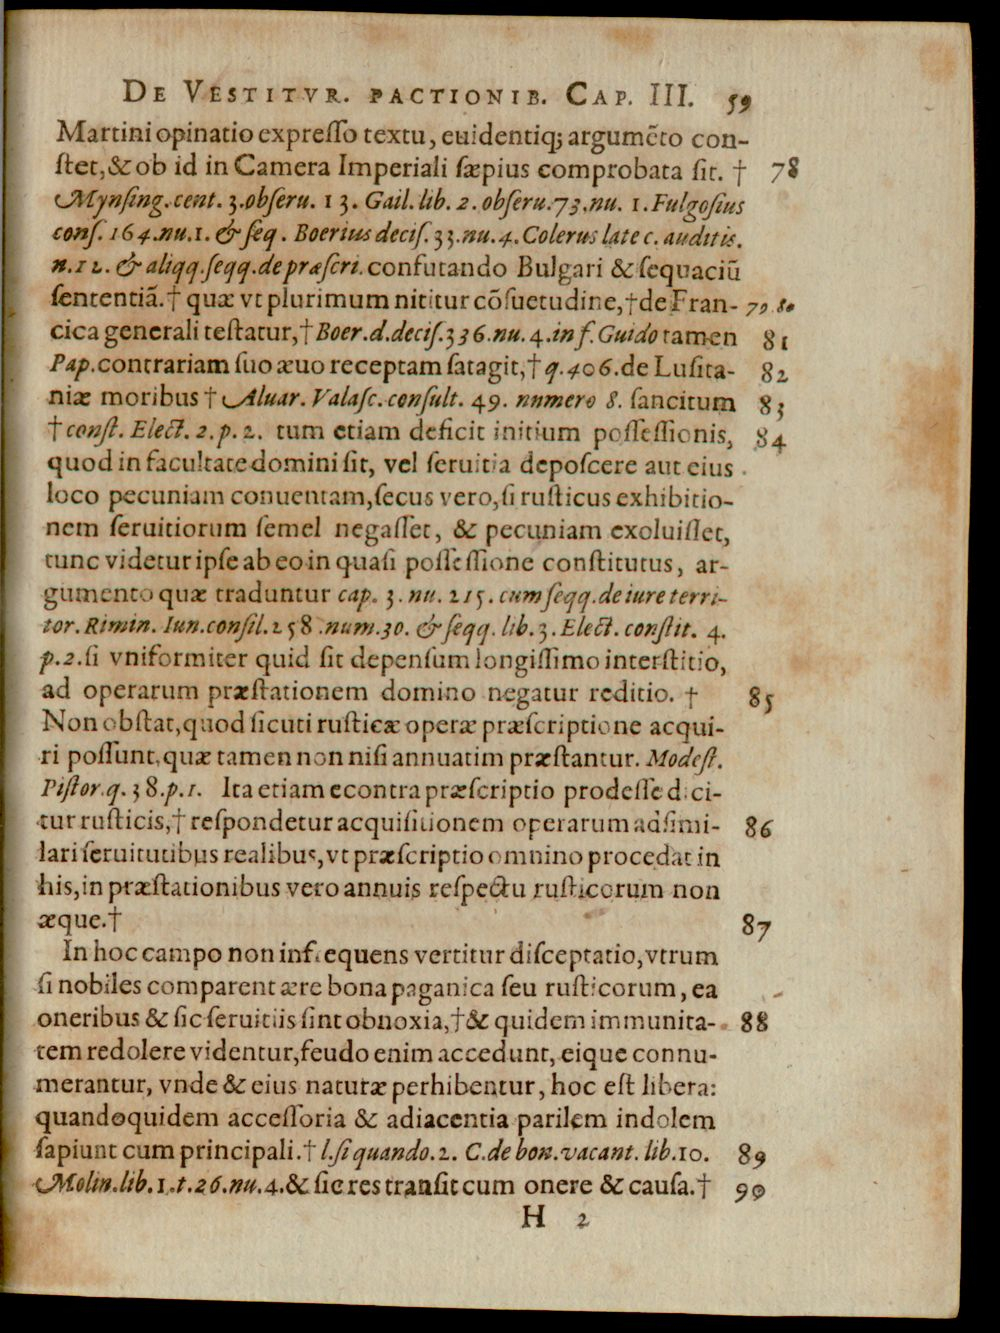 DE VESTITVR. PACTIONIB. CAP. III. 59
Martini opinatio expreſſo textu, euidentiq; argumẽto con-
ſtet, & ob id in Camera Imperiali ſæpius comprobata ſit. † 78
Mynſing. cent. 3. obſeru. 13. Gail. lib. 2. obſeru. 73. nu. 1. Fulgoſius
conſ. 164. nu. 1. & ſeq. Boerius deciſ. 33. nu. 4. Colerus late c. auditis.
n. 12. & aliqq. ſeqq. de præſcri. confutando Bulgari & ſequaciũ
ſententiã. † quæ vt plurimum nititur cõſuetudine, † de Fran- 79. 80
cica generali teſtatur, † Boer. d. deciſ. 336. nu. 4. in f. Guido tamen 81
Pap. contrariam ſuo æuo receptam ſatagit, † q. 406. de Luſita- 82
niæ moribus † Aluar. Valaſc. conſult. 49. numero 8. ſancitum 83
† conſt. Elect. 2. p. 2. tum etiam deficit initium poſſeſſionis, 84
quod in facultate domini ſit, vel ſeruitia depoſcere aut eius
loco pecuniam conuentam, ſecus vero, ſi ruſticus exhibitio-
nem ſeruitiorum ſemel negaſſet, & pecuniam exoluiſſet,
tunc videtur ipſe ab eo in quaſi poſſeſſione conſtitutus, ar-
gumento quæ traduntur cap. 3. nu. 215. cum ſeqq. de iure terri-
tor. Rimin. Iun. conſil. 258. num. 30. & ſeqq. lib. 3. Elect. conſtit. 4.
p. 2. ſi vniformiter quid ſit depenſum longiſſimo interſtitio,
ad operarum præſtationem domino negatur reditio. † 85
Non obſtat, quod ſicuti ruſticæ operæ præſcriptione acqui-
ri poſſunt, quæ tamen non niſi annuatim præſtantur. Modeſt.
Piſtor. q. 38. p. 1. Ita etiam econtra præſcriptio prodeſſe dici-
tur ruſticis, † reſpondetur acquiſitionem operarum adſimi- 86
lari ſeruitutibus realibus, vt præſcriptio omnino procedat in
his, in præſtationibus vero annuis reſpectu ruſticorum non
æque. † 87
In hoc campo non infrequens vertitur diſceptatio, vtrum
ſi nobiles comparent ære bona paganica ſeu ruſticorum, ea
oneribus & ſic ſeruitiis ſint obnoxia, † & quidem immunita- 88
tem redolere videntur, feudo enim accedunt, eique connu-
merantur, vnde & eius naturæ perhibentur, hoc eſt libera:
quandoquidem acceſſoria & adiacentia parilem indolem
ſapiunt cum principali. † l. ſi quando. 2. C. de bon. vacant. lib. 10. 89
Molin. lib. 1. t. 26. nu. 4. & ſic res tranſit cum onere & cauſa. † 90
H 2